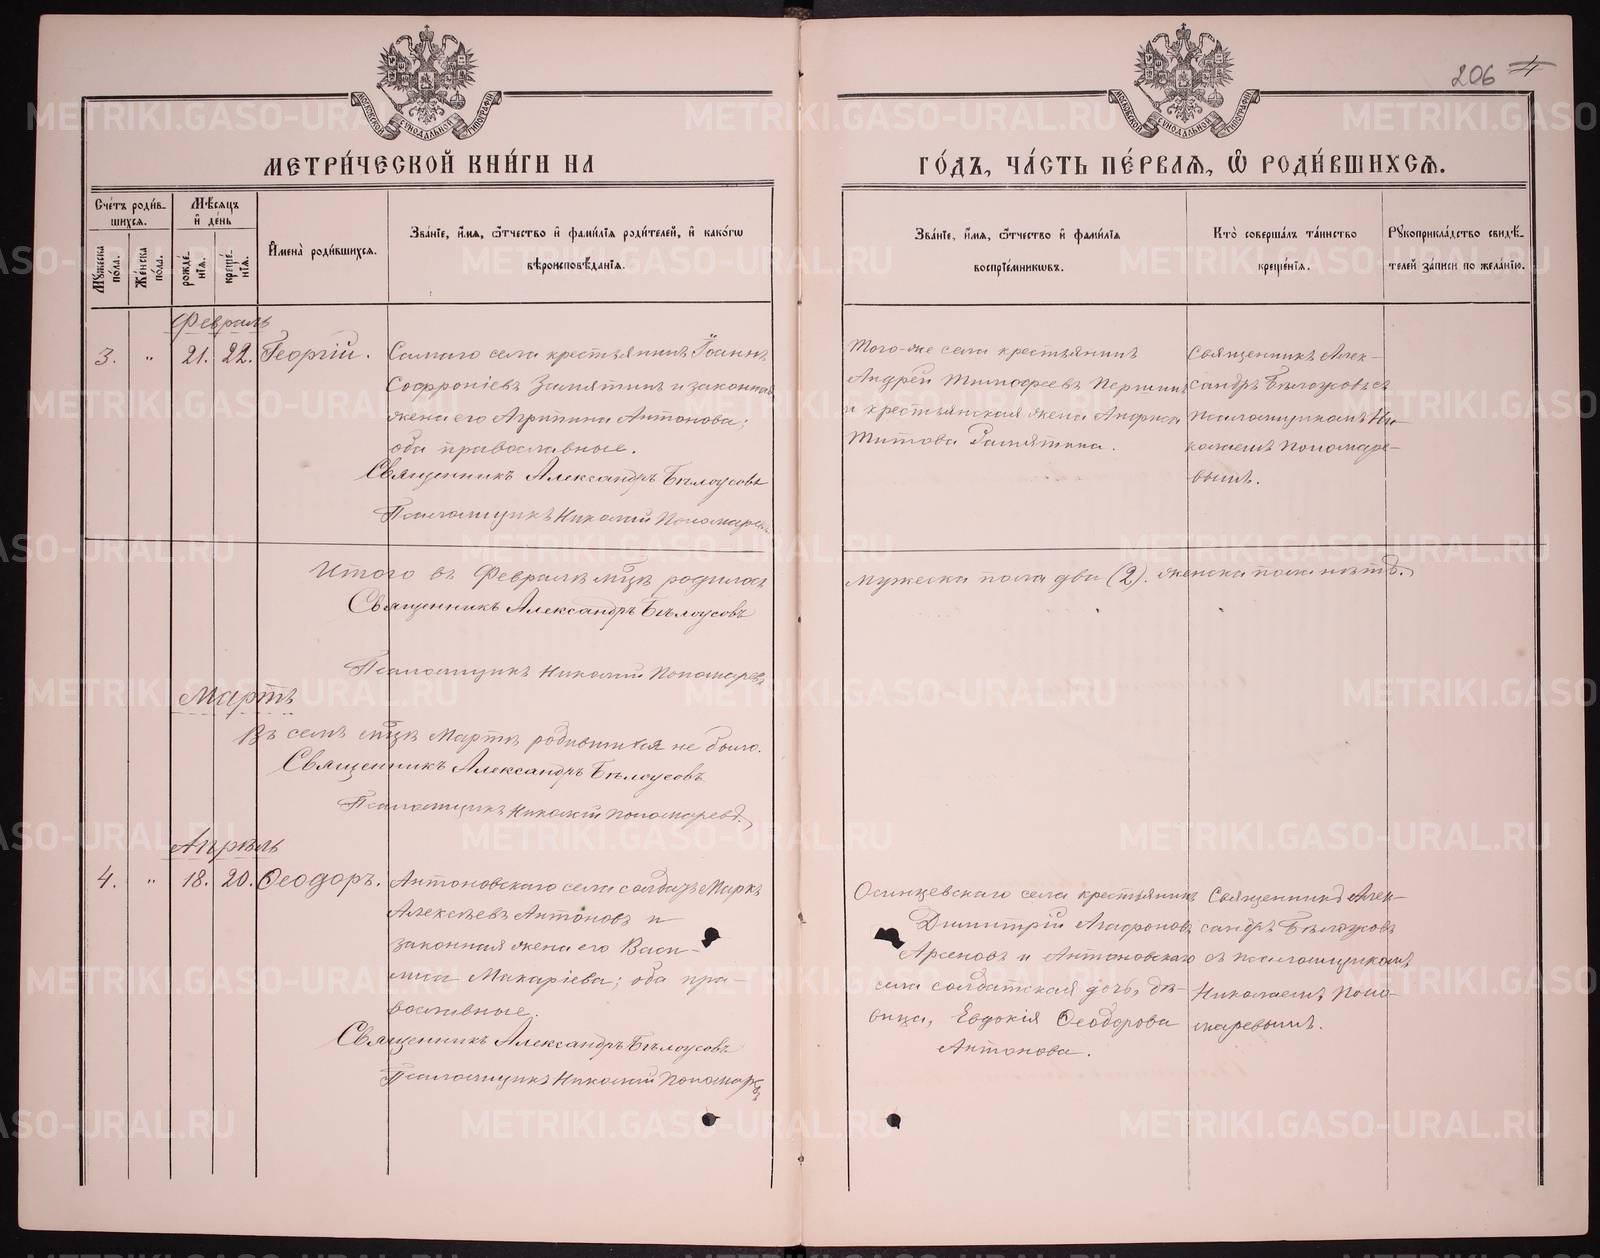 206 4
МЕТРИ́ЧЕСКОЙ КНИ́ГИ НА
ГО́ДЪ, ЧА́СТЬ ПЕ́РВАЯ, Ѡ РОДИ́ВШИХСЯ.
Сче́тъ роди́в-
шихся.
Мѣ́сяцъ
и де́нь
Му́жеска по́ла.
Же́нска по́ла.
рожде́-
нія.
креще́-
нія.
Имена̀ роди́вшихся.
Зва́ніе, и́мя, ѻ́тчество и фами́лія роди́телей, и како́гѡ
вѣроисповѣ́данія.
Зва́ніе, и́мя, ѻ́тчество и фами́лія
воспріе́мникѡвъ.
Кто̀ соверша́лъ та́инство
креще́нія.
Рукоприкла́дство свидѣ́-
телей за́писи по жела́нію.
Февраль
3. " 21. 22. Георгій.
Самаго села крестьянинъ Іоаннъ
Софроніевъ Замятинъ и законная
жена его Агрипина Антонова;
оба православные.
Священникъ Александръ Бѣлоусовъ
Псаломщикъ Николай Пономаревъ
Того-же села крестьянинъ
Андрей Тимофеевъ Першинъ
и крестьянская жена
Титова Замятина.
Священникъ Алек-
сандръ Бѣлоусовъ съ
псаломщикомъ Ни-
колаемъ Пономаре-
вымъ.
Итого въ Февралѣ мцѣ родилось
мужеска пола два (2). женска пола нѣтъ.
Священникъ Александръ Бѣлоусовъ
Псаломщикъ Николай Пономаревъ
Мартъ
Въ семъ мцѣ Мартѣ родившихся не было.
Священникъ Александръ Бѣлоусовъ
Псаломщикъ Николай Пономаревъ.
Апрѣль
4. " 18. 20. Ѳеодоръ.
Антоновскаго села солдатъ Маркъ
Алексѣевъ Антоновъ и
законная жена его Васи-
лиса Макаріева; оба пра-
вославные.
Священникъ Александръ Бѣлоусовъ
Псаломщикъ Николай Пономаревъ
Осинцевскаго села крестьянинъ
Димитрій Агафоновъ
Арсеновъ и Антоновскаго
села солдатская дочь, дѣ-
вица, Евдокія Ѳеодорова
Антонова.
Священникъ Алек-
сандръ Бѣлоусовъ
съ псаломщикомъ
Николаемъ Поно-
маревымъ.
METRIKI.GASO-URAL.RU